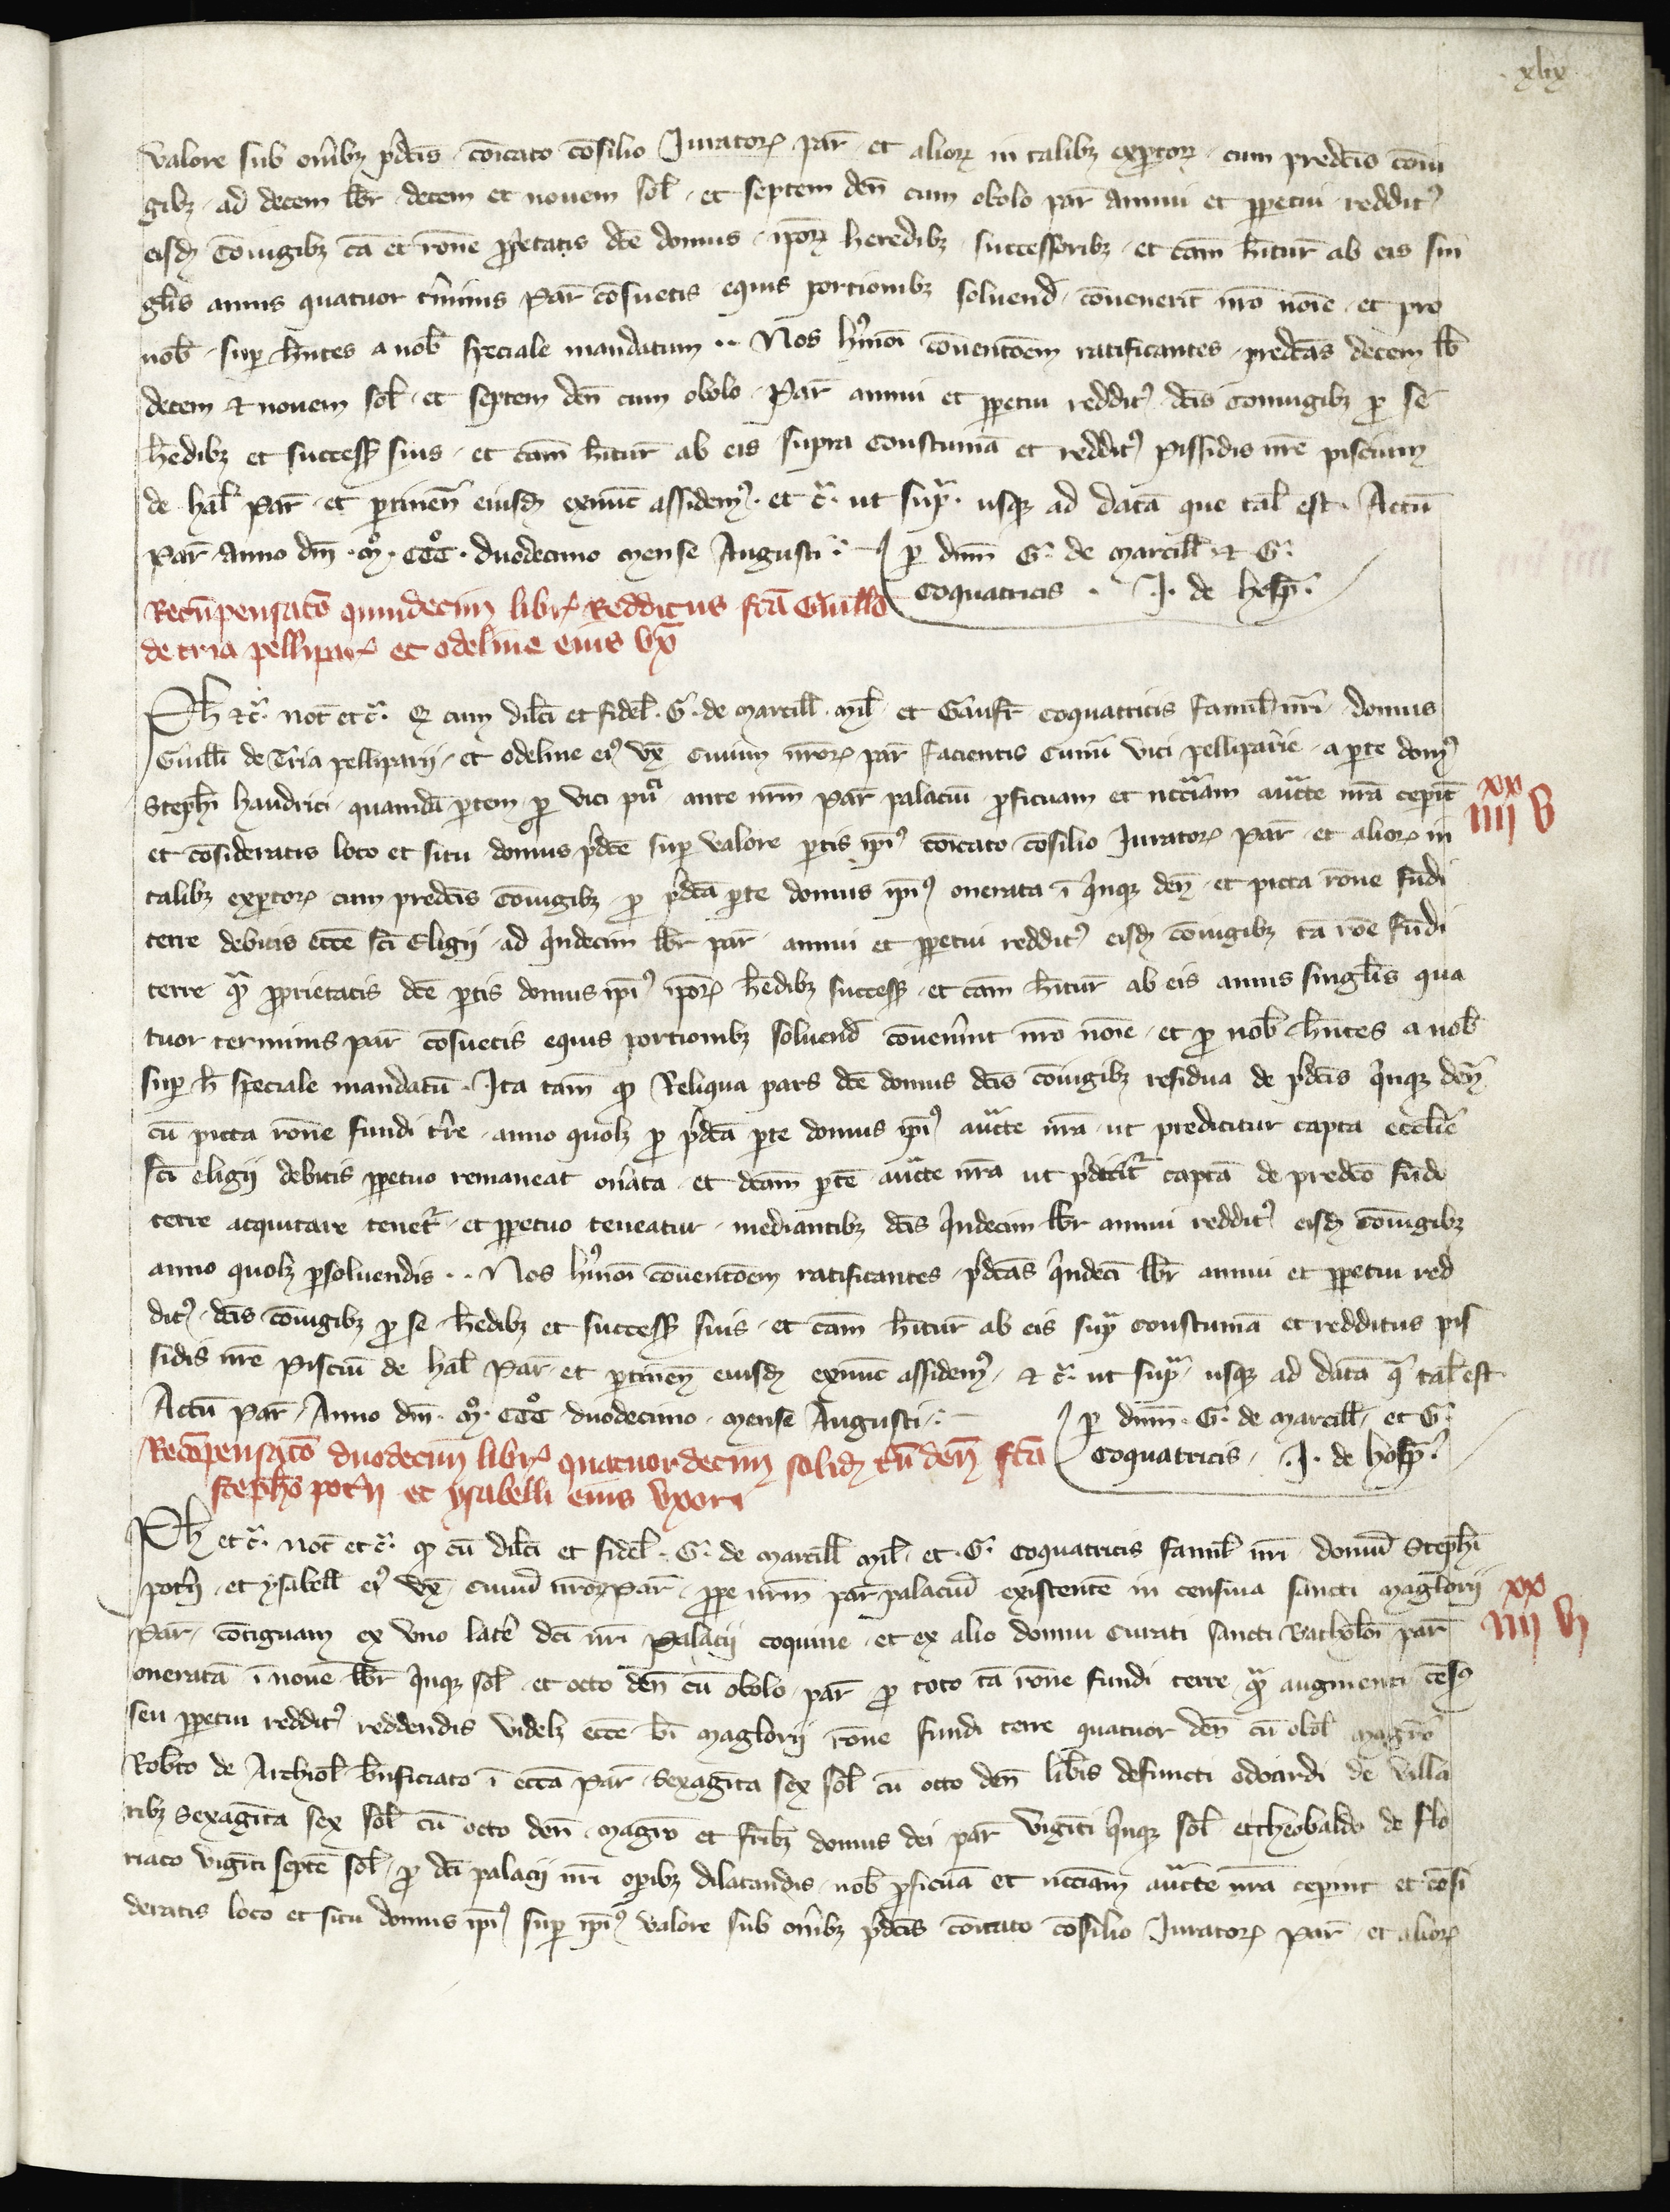 xlix
valore sub om̃ibȝ p̃dc̃is . cõicato cõsilio Juratoꝝ par̃ . et alioꝝ in talibȝ exꝑtoꝝ . cum predc̃is cõiu
gibȝ . ad decem libr̃ decem et novem sol̃ . et septem den̄ cum obolo par̃ annui et ꝑpetui reddit⁹
eisdꝫ cõiugibȝ cã et rõne ꝓp̃etatis dc̃e domus . ip̃oꝝ heredibȝ successoribȝ . et cãm hĩtur̃ ab eis sin
gl̃is annis quatuor t̃minis par̃ cõsuetis equis portionibȝ solvend̃ . cõvenerĩt nr̃o noĩe . et pro
nob̃ . suꝑ hñtes a nob̃ speciale mandatum . . Nos hm̃oi cõventõem ratificantes . predc̃as decem lb̃
decem et novem sol̃ . et septem den̄ cum obolo . par̃ annui et ꝑpetui reddit⁹ dc̃is coniugibȝ ꝑ se
h̃edibȝ et success̃ suis . et cãm hĩtur̃ ab eis supra constumã et reddit⁹ pissidis nr̃e piscium
de hal̃ par̃ . et ꝑtinen̄ eiusdꝫ exnũc assidem⁹ . et c̃ . ut sup̃ . usqꝫ ad datã que tal̃ est . Actũ
par̃ anno dn̄i . m̊ . ccc̊ . duodecimo mense Augusti . ꝑ dn̄m G . de marcill̃ et G .
coquatricis . J . de hosp̃ .
Recũpensatõ quindecim libr̃ Redditus fc̃a Guill̃o
de tria pellipar̃ et odeline eius ux̃
Ph̃ et c̃ . not̃ et c̃ . Qꝫ cum dilc̃i et fidel̃ . G . de marcill̃ . mil̃ et Gaufr̃ coquatricis famil̃ nr̃i . domus
Guill̃i de Tria pelliparij . et odeline ei⁹ ux̃ civium nr̃oꝝ par̃ facientis cunũ vici pelliparie . a ꝑte dom⁹
Steph̃i haudrici . quamdã ꝑtem ꝑ vici pũ ante nr̃m par̃ palaciũ ꝓficuam et nc̃c̃iam auc̃te nr̃a cepĩt
et cõsideratis loco et situ domus p̃dc̃e suꝑ valore ꝑtis ip̃i⁹ cõicato cõsilio Juratoꝝ par̃ et alioꝝ in
talibȝ exꝑtoꝝ . cum predc̃is cõiugibȝ . ꝑ p̃dc̃a ꝑte domus ip̃i⁹ onerata ĩ q̃nqꝫ den̄ . et picta rõne fũdi
terre debitis ecc̃e sc̃i Eligij . ad q̃ndecim lbr̃ par̃ annui et ꝑpetui reddit⁹ eisdꝫ cõiugibȝ tã rõe fũdi
terre q̃ꝫ ꝓprietatis dc̃e ꝑtis domus ip̃i⁹ ip̃oꝝ h̃edibȝ success̃ . et cãm hĩtur̃ ab eis annis singl̃is qua
tuor terminis par̃ cõsuetis equis portionibȝ solvend̃ cõvenĩnt nr̃o noĩe . et ꝑ nob̃ hñtes a nob̃
suꝑ h̃ speciale mandatũ . Ita tam̃ qꝫ Reliqua pars dc̃e domus dc̃is cõiugibȝ residua de p̃dc̃is q̃nqꝫ den̄
cũ picta rõne fundi t̃re . anno quolꝫ ꝑ p̃dc̃a ꝑte domus ip̃i⁹ auc̃te nr̃a ut predicitur capta eccl̃ie
sc̃i eligij debitis ꝑpetuo remaneat on̄ata . et dc̃am ꝑtẽ auc̃te nr̃a ut p̃dicit̃ captã de predc̃o fũdo
terre acquitare tenet̃ . et ꝑpetuo teneatur . mediantibȝ dc̃is q̃ndecim lbr̃ annui reddit⁹ eisdꝫ cõiugibȝ
anno quolꝫ ꝑsolvendis . . Nos hm̃oi cõventõem ratificantes . p̃dc̃as q̃ndecĩ lbr̃ annui et ꝑpetui red
dit⁹ . dc̃is cõiugibȝ ꝑ se h̃edibȝ et success̃ suis . et cãm hĩtur̃ ab eis sup̃ constumã et redditus pis
sidis nr̃e Pisciũ de hal̃ par̃ . et ꝑtinen̄ eiusdꝫ exnũc assidem⁹ . et c̃ . ut sup̃ . usqꝫ ad datã q̃ tal̃ est
Actũ par̃ . Anno dn̄i . m̊ . ccc̊ . duodecimo . mense Augusti . ꝑ dn̄m . G . de marcill̃ . et G .
coquatricis . J . de hosp̃ .
Recõpensatõ duodecim libr̃ quatuordecim solidꝫ cũ den̄ fc̃a
stephõ pot̃n et ysabelli eius uxori
Ph̃ et c̃ . not̃ et c̃ . qꝫ cũ dilc̃i et fidel̃ . G . de marcill̃ mil̃ . et . G . coquatricis famil̃ nr̃i . domũ Steph̃i
pot̃n . et ysabell̃ ei⁹ ux̃ . civiũ nr̃oꝝ par̃ . ꝓpe nr̃m par̃ palaciũ existentẽ in censiva sancti maglorij
par̃ . cõtiguam ex uno lat̃e dc̃i nr̃i palacij coquine . et ex alio domui curati sancti Bartholõi par̃
oneratã ĩ novẽ lbr̃ q̃nqꝫ sol̃ . et octo den̄ cũ obolo . par̃ ꝑ toto tã rõne fundi terre q̃ꝫ augmenti cẽs⁹
seu ꝑpetui reddit⁹ reddendis videlꝫ ecc̃e bĩ maglorij rõne fundi terre quatuor den̄ cũ obol̃ magr̃o
Rob̃to de Archiol̃ bn̄ficiato ĩ ecc̃a par̃ . sexagĩta sex sol̃ cũ octo den̄ lib̃is defuncti odoardi de villa
ribȝ sexagĩta sex sol̃ cũ octo den̄ . magr̃o et fr̃ibȝ domus dei par̃ vigĩti q̃nqꝫ sol̃ . et theobaldo de flo
riaco vigĩti septẽ sol̃ . ꝑ dc̃i palacij nr̃i oꝑibȝ dilatandis . nob̃ ꝓficuã et nc̃c̃iam auc̃te nr̃a cepĩnt et cõsi
deratis loco et situ domus ip̃i⁹ suꝑ ip̃i⁹ valore sub om̃ibȝ p̃dc̃is cõicato cõsilio Juratoꝝ par̃ . et alioꝝ
xx
iiij v
xx
iiij vj